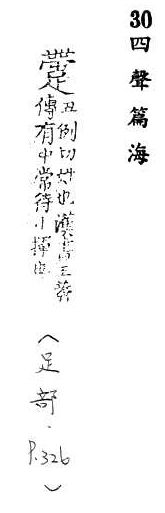 30 四聲篇海
丑例切 也漢書王莽
傳有中常待 揮也
〈足部．P.326〉